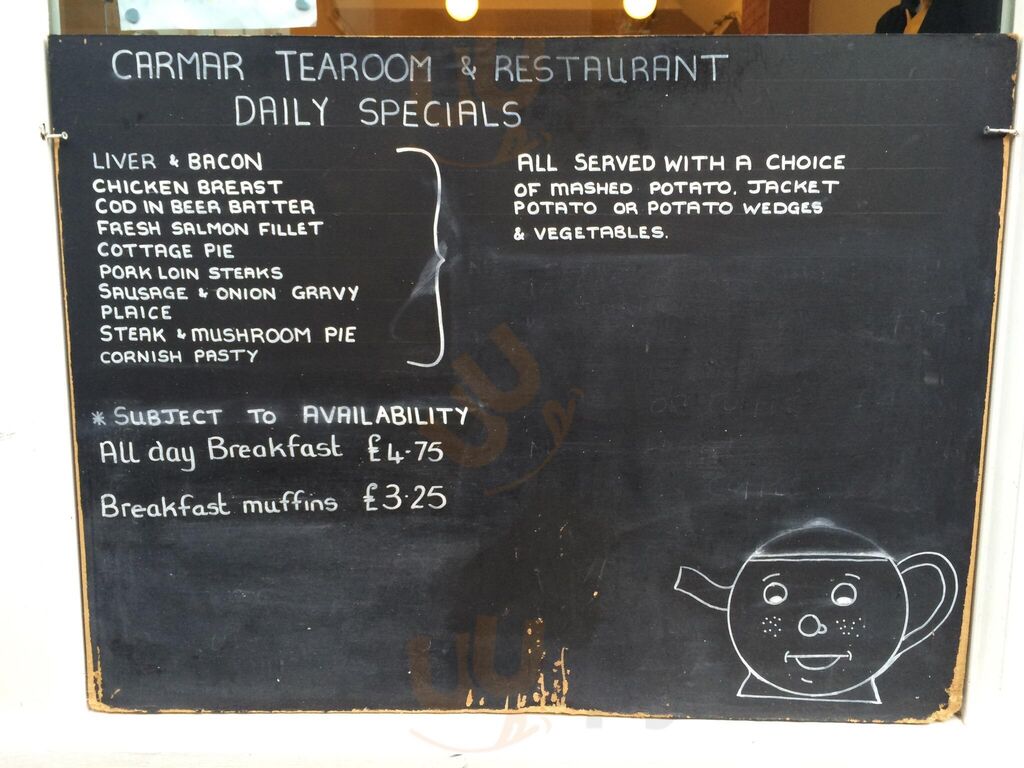 CARMAR TEAROOM & RESTAURANT
DAILY SPECIALS
LIVER & BACON
CHICKEN BREAST
COD IN BEER BATTER
FRESH SALMON FILLET
COTTAGE PIE
PORK LOIN STEAKS
SAUSAGE & ONION GRAVY
PLAICE
STEAK & MUSHROOM PIE
CORNISH PASTY
ALL SERVED WITH A CHOICE
OF MASHED POTATO. JACKET
POTATO OR POTATO WEDGES
& VEGETABLES.
* SUBJECT TO AVAILABILITY
All day Breakfast £4.75
Breakfast muffins £3.25